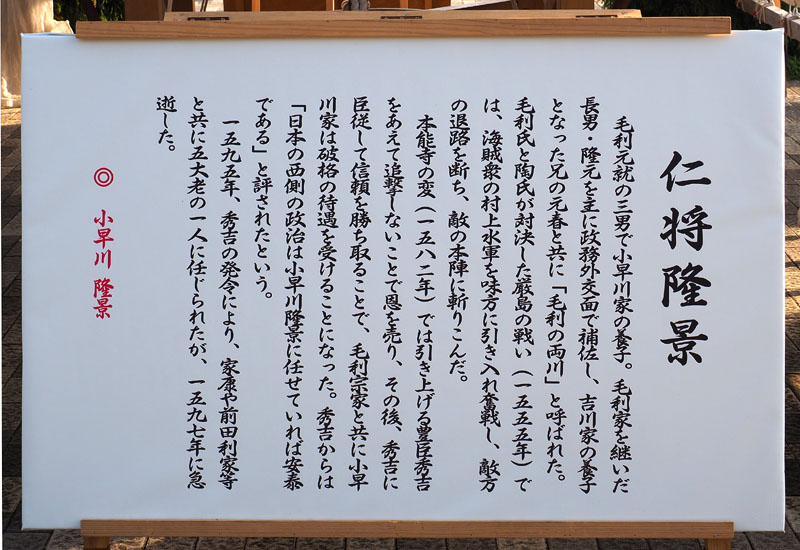 仁将隆景
毛利元就の三男で小早川家の養子。毛利家を継いだ
長男・隆元を主に政務外交面で補佐し、吉川家の養子
となった兄の元春と共に「毛利の両川」と呼ばれた。
毛利氏と陶氏が対決した厳島の戦い（一五五五年）で
は、海賊衆の村上水軍を味方に引き入れ奮戦し、敵方
の退路を断ち、敵の本陣に斬りこんだ。
本能寺の変（一五八二年）では引き上げる豊臣秀吉
をあえて追撃しないことで恩を売り、その後、秀吉に
臣従して信頼を勝ち取ることで、毛利宗家と共に小早
川家は破格の待遇を受けることになった。秀吉からは
「日本の西側の政治は小早川隆景に任せていれば安泰
である」と評されたという。
一五九五年、秀吉の発令により、家康や前田利家等
と共に五大老の一人に任じられたが、一五九七年に急
逝した。
◎ 小早川 隆景